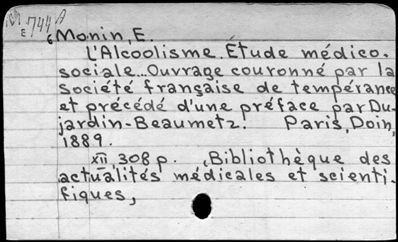 744 A
E
6
Monin, E.
L'Alcoolisme. Étude médico-
sociale... Ouvrage couronné par la
société française de tempérance
et précédé d'une préface par Du-
jardin-Beaumetz. Paris, Doin,
1889.
XII, 308 p. (Bibliothèque des
actualités médicales et scienti-
fiques,